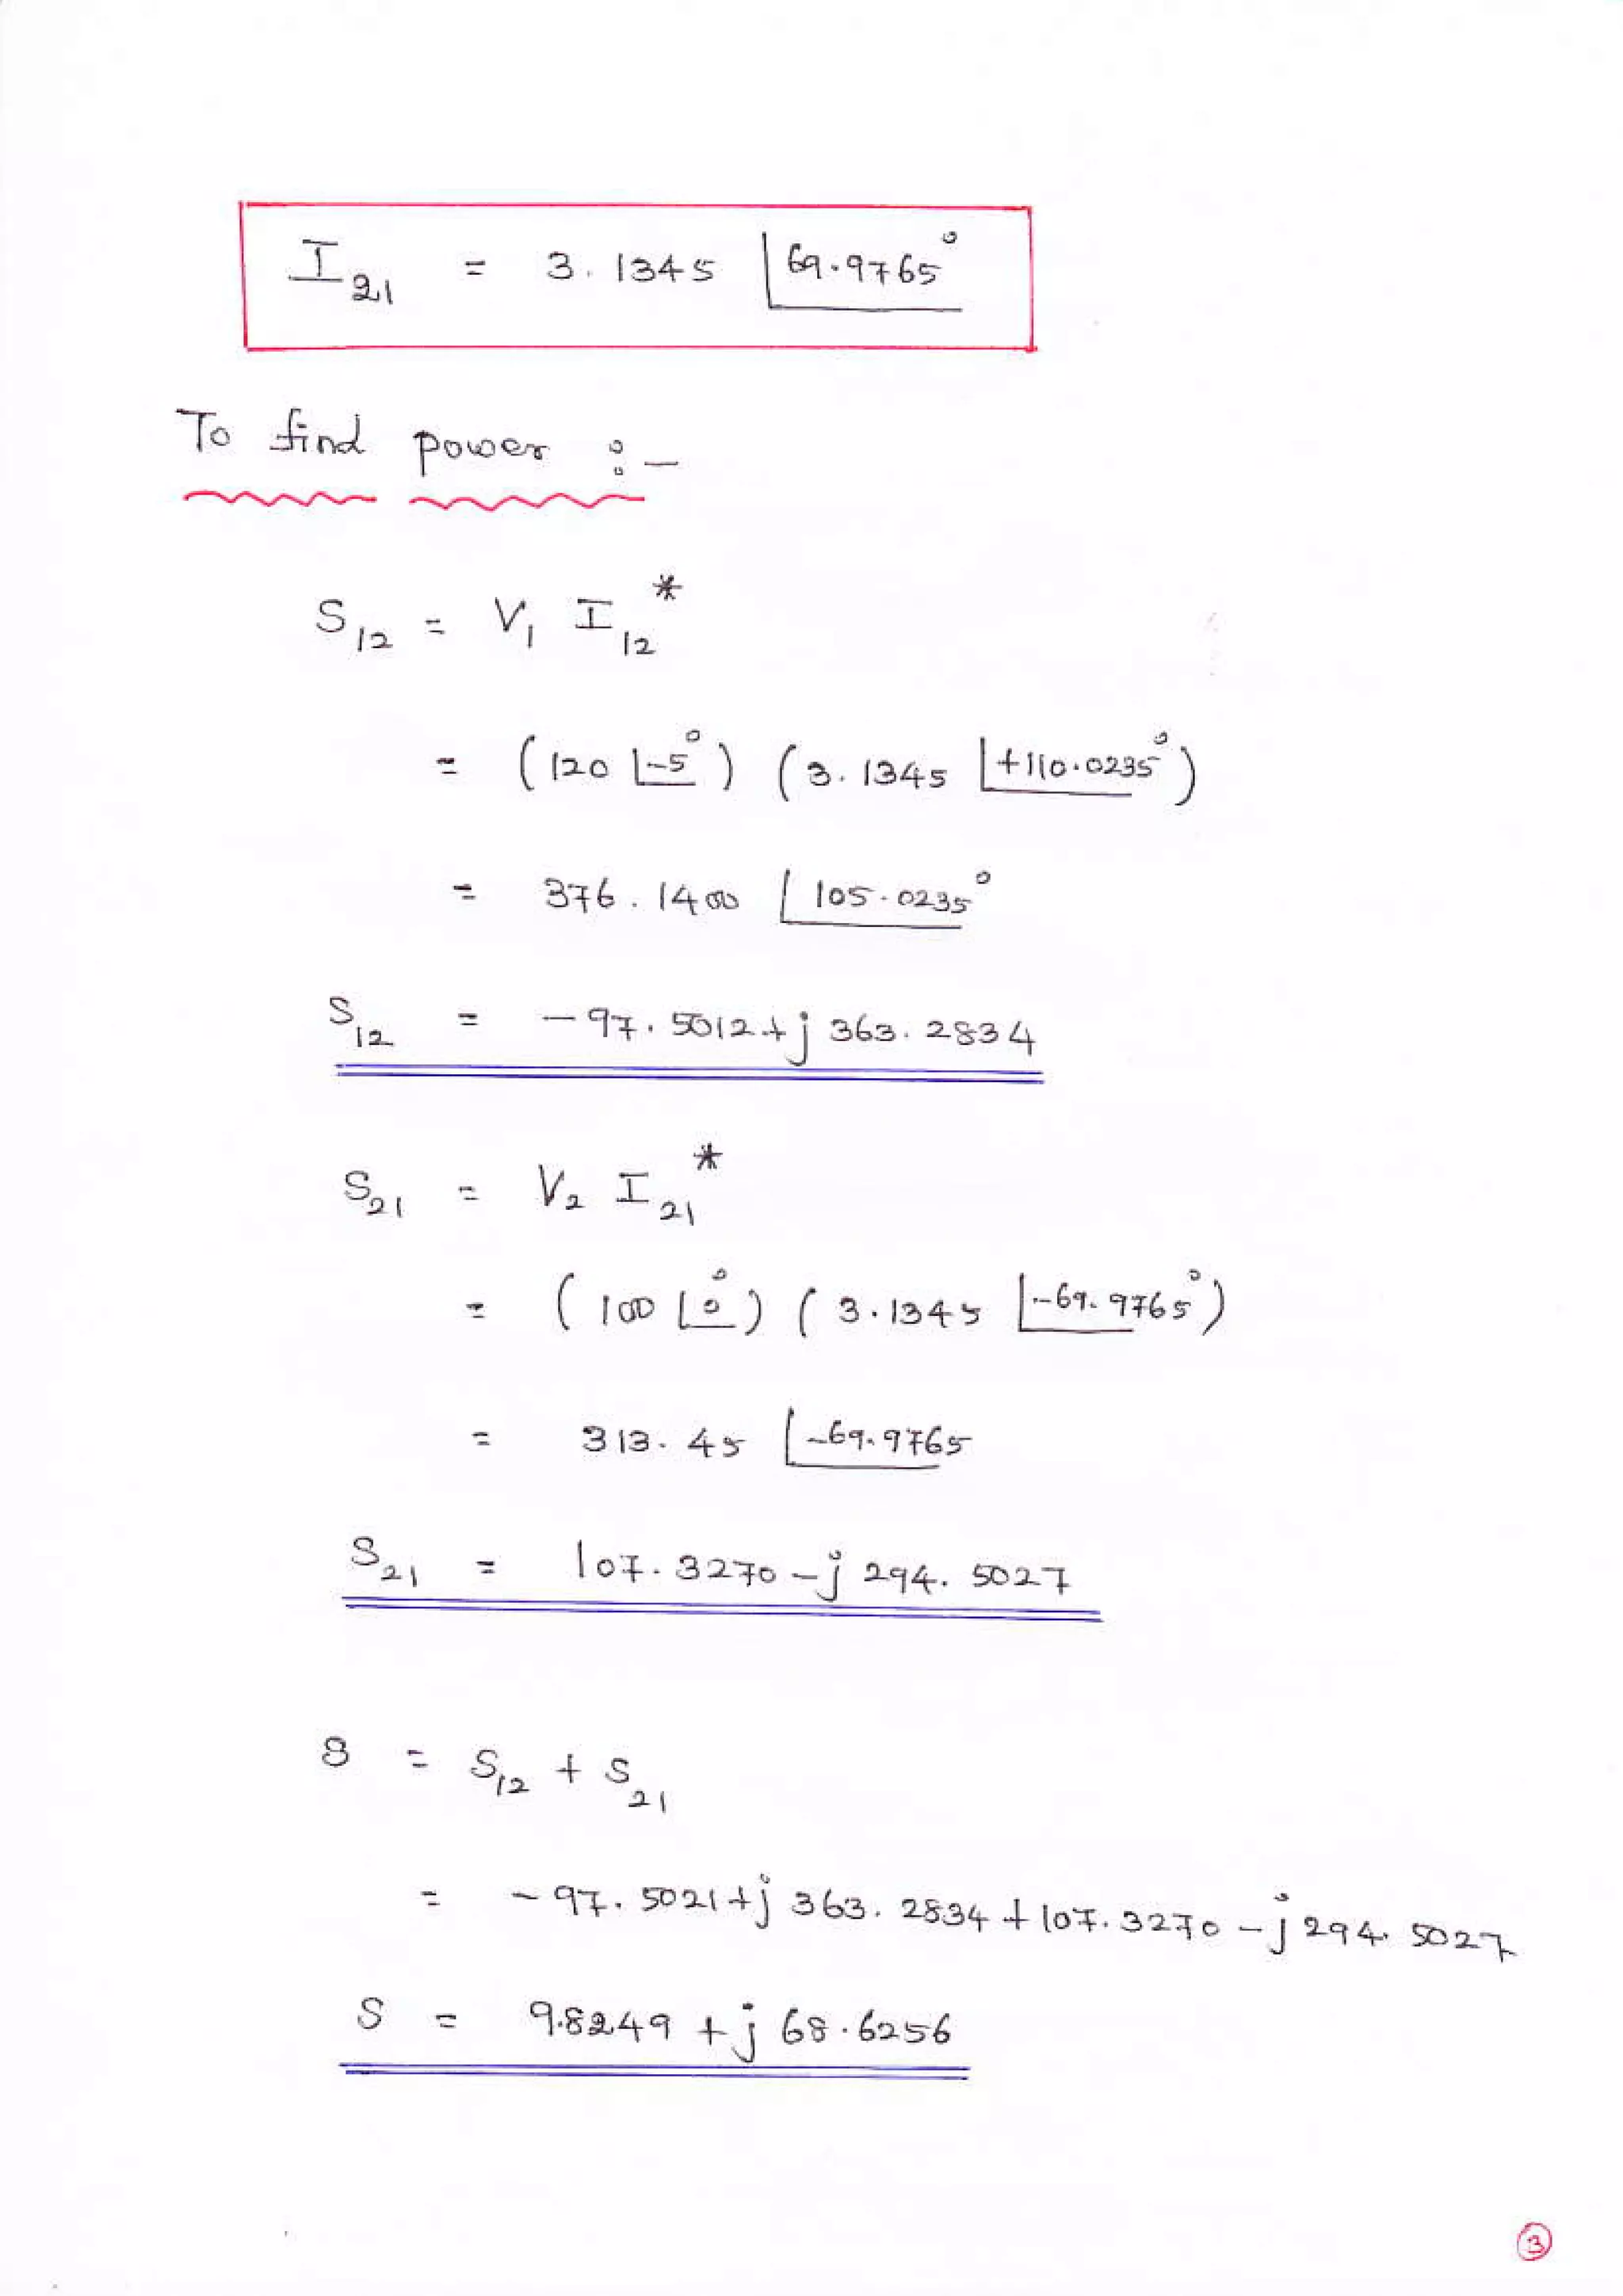 I₂₁ = 3.1345 ∠69.9765°
To find power :-
S₁₂ = V₁ I₁₂*
= (120 ∠-5°) (3.1345 ∠+110.0235°)
= 376.1400 ∠105.0235°
S₁₂ = -97.5012+j 363.2834
S₂₁ = V₂ I₂₁*
= (100 ∠0°) (3.1345 ∠-69.9765°)
= 313.45 ∠-69.9765
S₂₁ = 107.3270 -j 294.5027
S = S₁₂ + S₂₁
= -97.5021+j 363.2834 + 107.3270 -j 294.5027
S = 9.8249 + j 68.6256
3